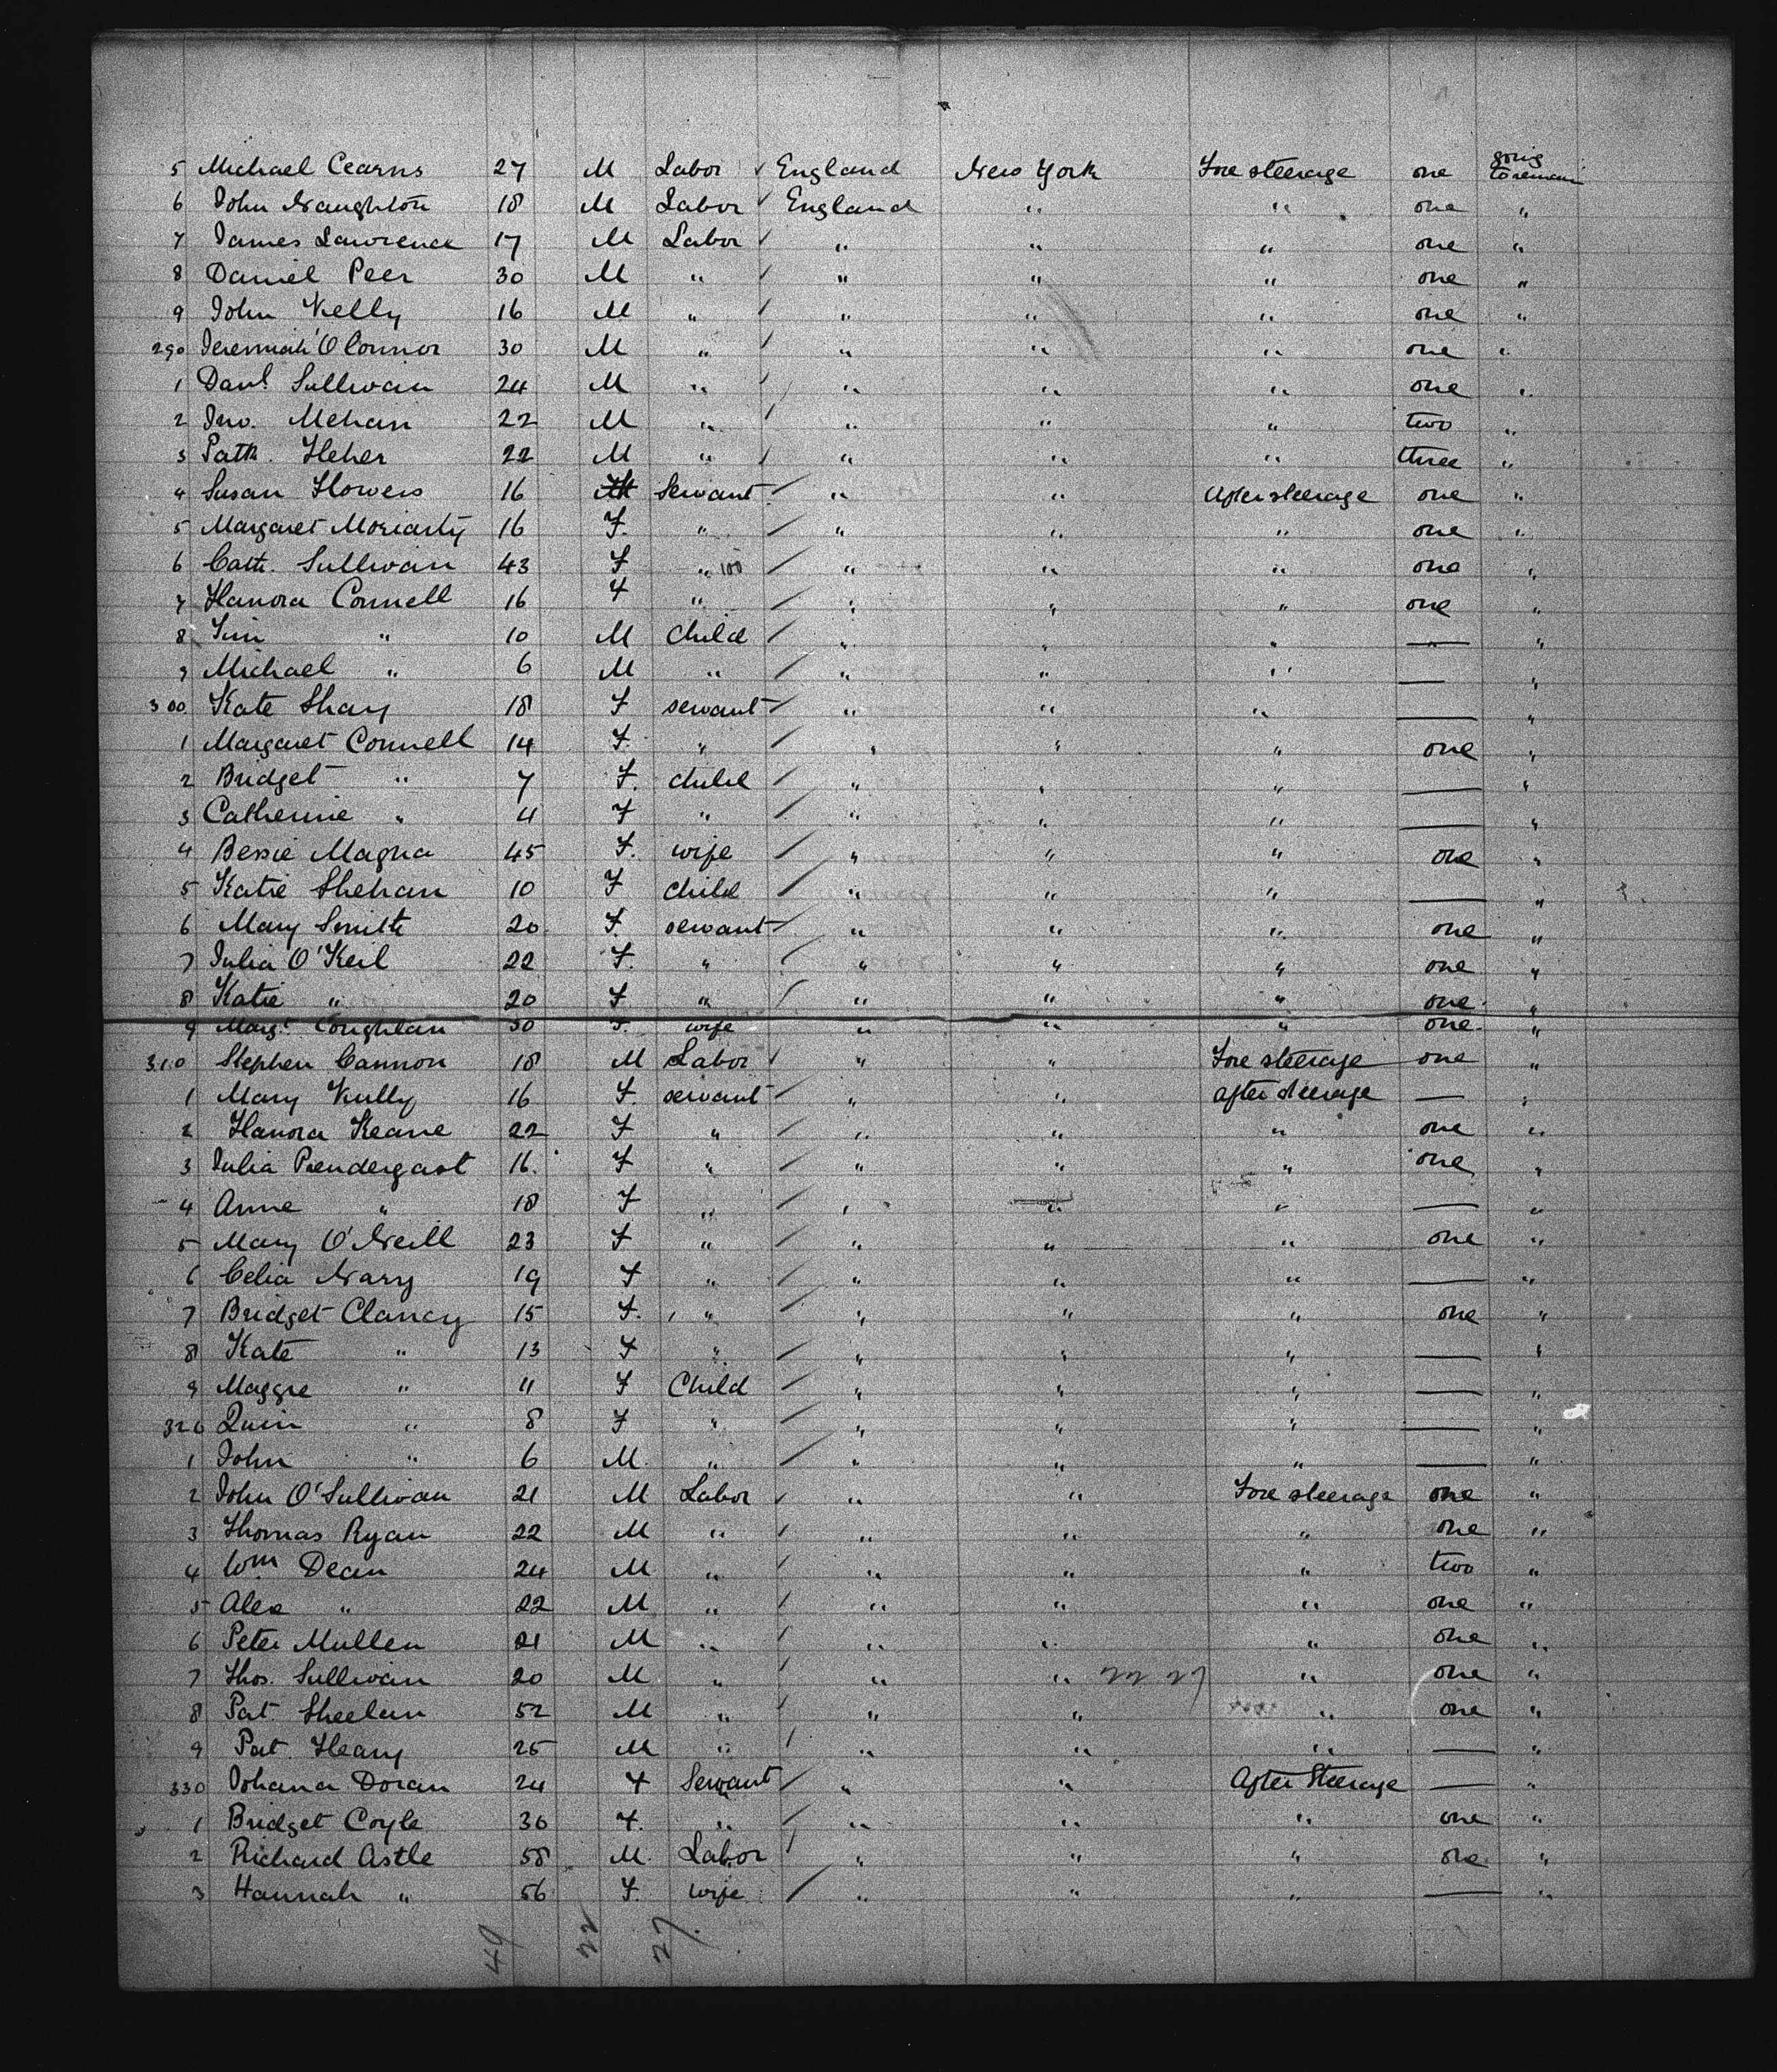 5 Michael Cearns 27 M Labor ✓ England New York Fore steerage one going to remain
6 John Naughton 18 M Labor ✓ England " " one "
7 James Lawrence 17 M Labor / " " " one "
8 Daniel Peer 30 M " / " " " one "
9 John Kelly 16 M " / " " " one "
290 Jeremiah O'Connor 30 M " / " " " one "
1 Danl. Sullivan 24 M " / " " " one "
2 Jno. Mehan 22 M " / " " " two "
3 Patk. Heher 22 M " / " " " three "
4 Susan Flowers 16 Servant / " " After steerage one "
5 Margaret Moriarty 16 F. " / " " " one "
6 Cath. Sullivan 43 F " 100 / " " " one "
7 Hanora Connell 16 F " / " " " one "
8 Tim " 10 M Child / " " " — "
9 Michael " 6 M " / " " " — "
300 Kate Shay 18 F servant / " " " — "
1 Margaret Connell 14 F. " / " " " one "
2 Bridget " 7 F. child / " " " — "
3 Catherine " 4 F " / " " " — "
4 Bessie Magna 45 F. wife / " " " one "
5 Katie Shehan 10 F child / " " " — "
6 Mary Smith 20 F. servant / " " " one "
7 Julia O'Keil 22 F. " / " " " one "
8 Katie " 20 F " / " " " one "
9 Margt. Coughlan 30 F. wife " " " one "
310 Stephen Cannon 18 M Labor ✓ " " Fore steerage one "
1 Mary Kully 16 F. servant / " " after steerage — "
2 Hanora Keane 22 F " / " " " one "
3 Julia Prendergast 16. F " / " " " one "
4 Anne " 18 F " / " " " — "
5 Mary O'Neill 23 F " / " " " one "
6 Celia Nary 19 F " / " " " — "
7 Bridget Clancy 15 F. " / " " " one "
8 Kate " 13 F " / " " " — "
9 Maggie " 11 F Child / " " " — "
320 " 8 F " / " " " — "
1 John " 6 M. " / " " " — "
2 John O'Sullivan 21 M Labor ✓ " " Fore steerage one "
3 Thomas Ryan 22 M " / " " " one "
4 Wm Dean 24 M " / " " " two "
5 Alex " 22 M " / " " " one "
6 Peter Mullen 21 M " / " " " one "
7 Thos. Sullivan 20 M " / " " 22 27 " one "
8 Pat. Sheelan 52 M " / " " " one "
9 Pat. Heary 25 M " / " " " — "
330 Johana Doran 24 F Servant / " " After Steerage — "
1 Bridget Coyle 36 F. " / " " " one "
2 Richard Astle 58 M. Labor / " " " one "
3 Hannah " 56 F. wife / " " " — "
49 22 27